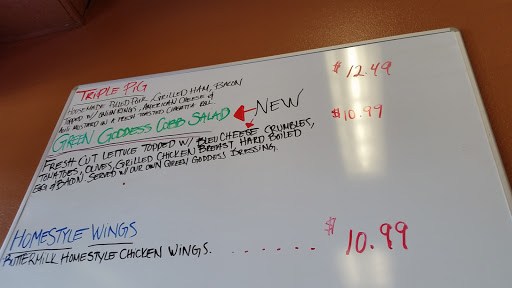 TRIPLE PIG
$12.49
HOUSEMADE PULLED PORK, GRILLED HAM, BACON
TOPPED W/ ONION RINGS, AMERICAN CHEESE &
MUSTARD IN A FRESH TOASTED CIABATTA ROLL.
GREEN GODDESS COBB SALAD
NEW
$10.99
FRESH CUT LETTUCE TOPPED W/ BLEU CHEESE CRUMBLES,
TOMATOES, OLIVES, GRILLED CHICKEN BREAST, HARD BOILED
EGG & BACON. SERVED W/ OUR OWN GREEN GODDESS DRESSING.
HOMESTYLE WINGS
BUTTERMILK HOMESTYLE CHICKEN WINGS. . . . . . . $10.99